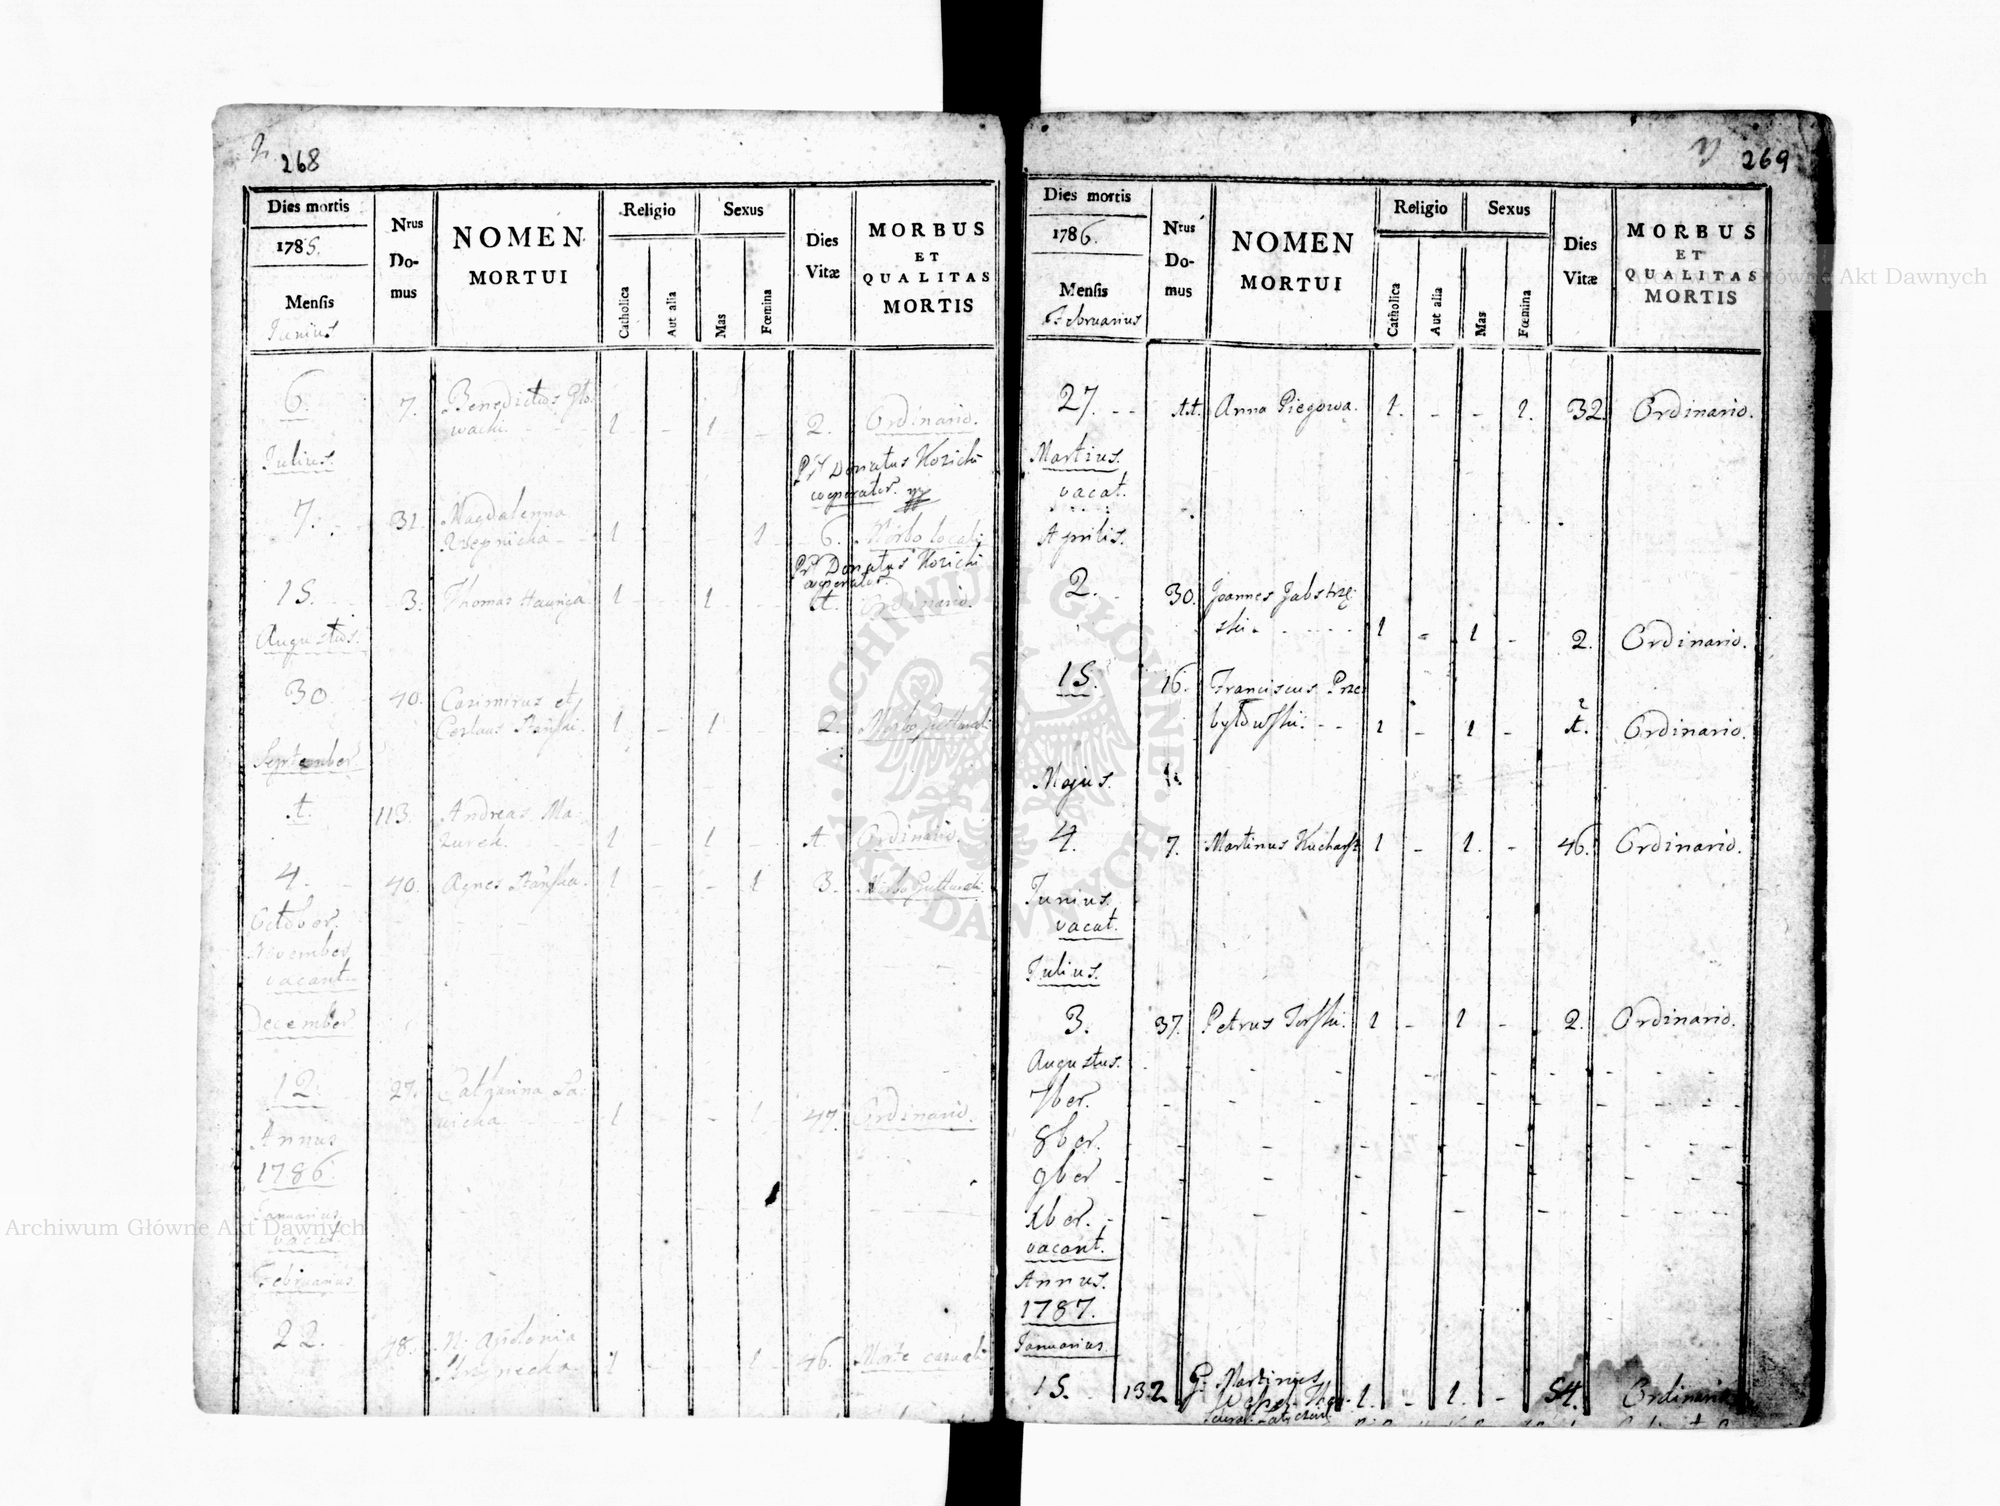 268
Dies mortis
1785.
Mensis
Junius
Nrus
Do-
mus
NOMEN
MORTUI
Religio
Catholica
Aut alia
Sexus
Mas
Fœmina
Dies
Vitæ
MORBUS
ET
QUALITAS
MORTIS
6. 7. Benedictus Gło-
wacki. 1 - 1 - 2. Ordinario.
Julius. Pr Donatus Kozicki
cooperator.
7. 31. Magdalenna
1 - - 1 6. Morbo locali
Pr Donatus Kozicki
cooperator.
15. 3. Thomas 1 - 1 - Ordinario.
Augustus.
30 40. Casimirus et
Ceslaus Stański. 1 - 1 - 2. Morbo Gutturali
September
1. 113. Andreas Ma-
zurek. 1 - 1 - 1 Ordinario.
4. 40. Agnes Stańska. 1 - - 1 3. Morbo Gutturali.
October.
November
vacant.
December
12. 27. Catharina
1 - - 1 47. Ordinario.
Annus
1786
Januarius
vacat
Februarius
22. 18. Antonia
1 - - 1 46. Morte casuali
269
Dies mortis
1786.
Mensis
Februarius
Nrus
Do-
mus
NOMEN
MORTUI
Religio
Catholica
Aut alia
Sexus
Mas
Fœmina
Dies
Vitæ
MORBUS
ET
QUALITAS
MORTIS
27. 11. Anna Piegowa. 1. - - 1. 32. Ordinario.
Martius.
vacat.
Aprilis.
2. 30. Joannes Jabstrzę-
ski. 1 - 1 - 2. Ordinario.
15. 16. Franciscus Prze-
byłowski. 1 - 1 - 1. Ordinario.
Majus.
4. 7. Martinus Kucharsz 1 - 1. - 46. Ordinario.
Junius
vacat.
Julius.
3. 37. Petrus Torski. 1 - 1 - 2. Ordinario.
Augustus.
7ber.
8ber.
9ber
xber.
vacant.
Annus.
1787.
Januarius.
15. 132 G: Martinus
1. - 1. - 54. Ordinario
Archiwum Główne Akt Dawnych
ARCHIWUM GŁÓWNE AKT DAWNYCH
Archiwum Główne Akt Dawnych